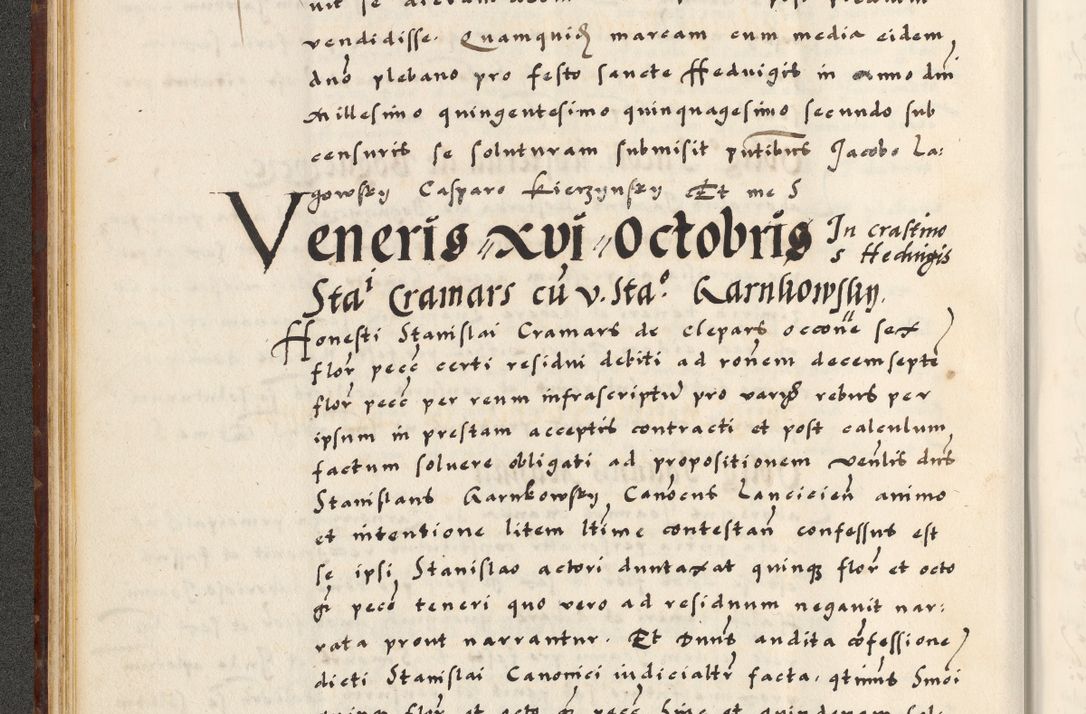 vendidisse. Quamquidẽ maream eum media eidem
dnõ plebano pro festo sancte Hedvigis in anno dni
millesimo quingentesimo quinquagesimo secundo sub
censuris se soluturam submisit pñtibus Jacobo La:
gowsky Casparo Kierzynsky Et me S
Veneris xvi Octobris In crastino
s Hedvigis
Stai Cramars cũ v. Stao. Karnkowsky.
Honesti Stanislai Cramars de clepars occõne sex
flor pecc certi residui debiti ad ronem decemsepte
flor pecc per reum infrascriptũ pro rebus per
ipsum in prestam acceptis contracti et post calculum
factum solvere obligati ad propositionem Venlis dns
Stanislaus Karnkowsky Canocus Lanicien animo
et intentione litem ltime contestan confessus est
se ipsi Stanislao actori duntaxat quinq flor et octo
gr peco teneri quo vero ad residuum negavit nar:
rata prout narrantur. Et Dnus audita cõfessione
dicti Stanislai Canonici iudicialtr facta, qtinus Smoi
flor et octo gr pecc et quindenam sol